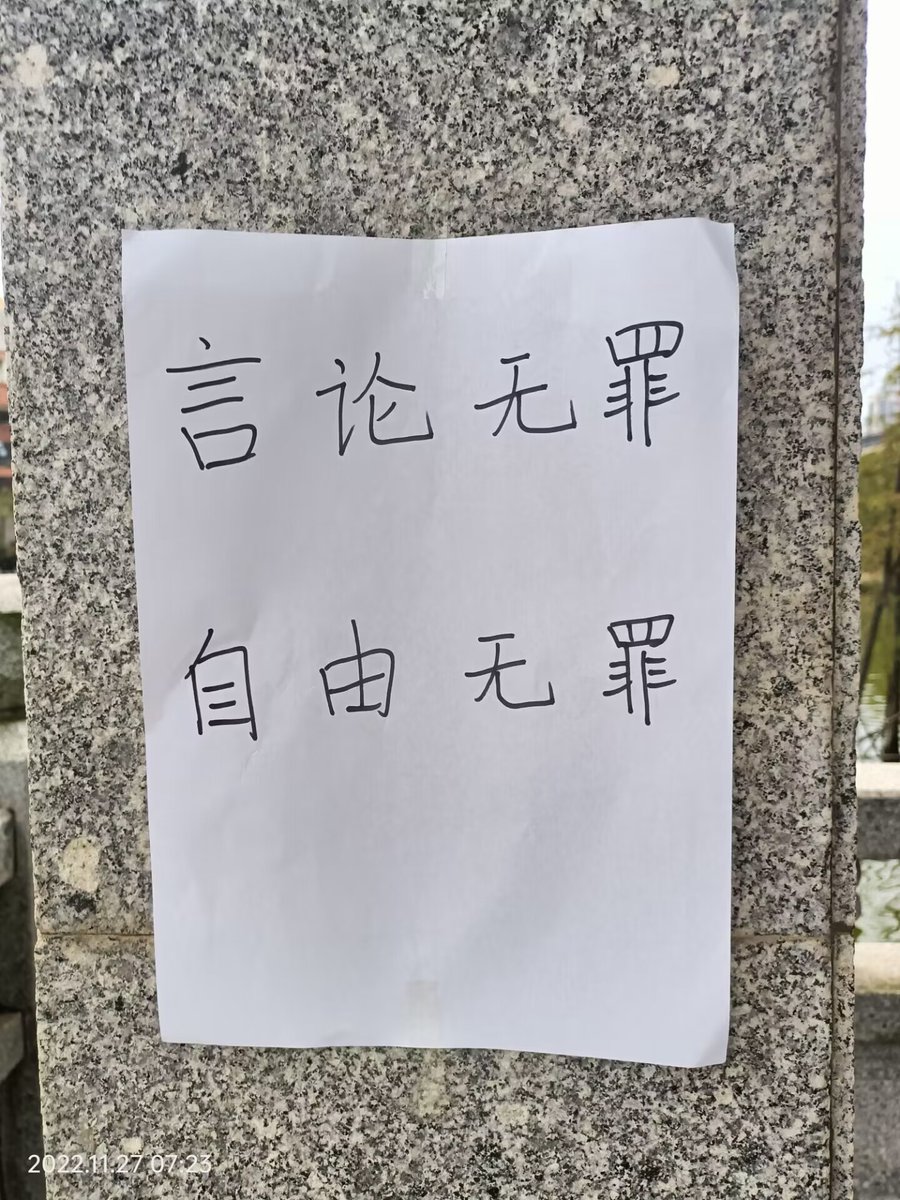 言论无罪
自由无罪
2022.11.27 07:23